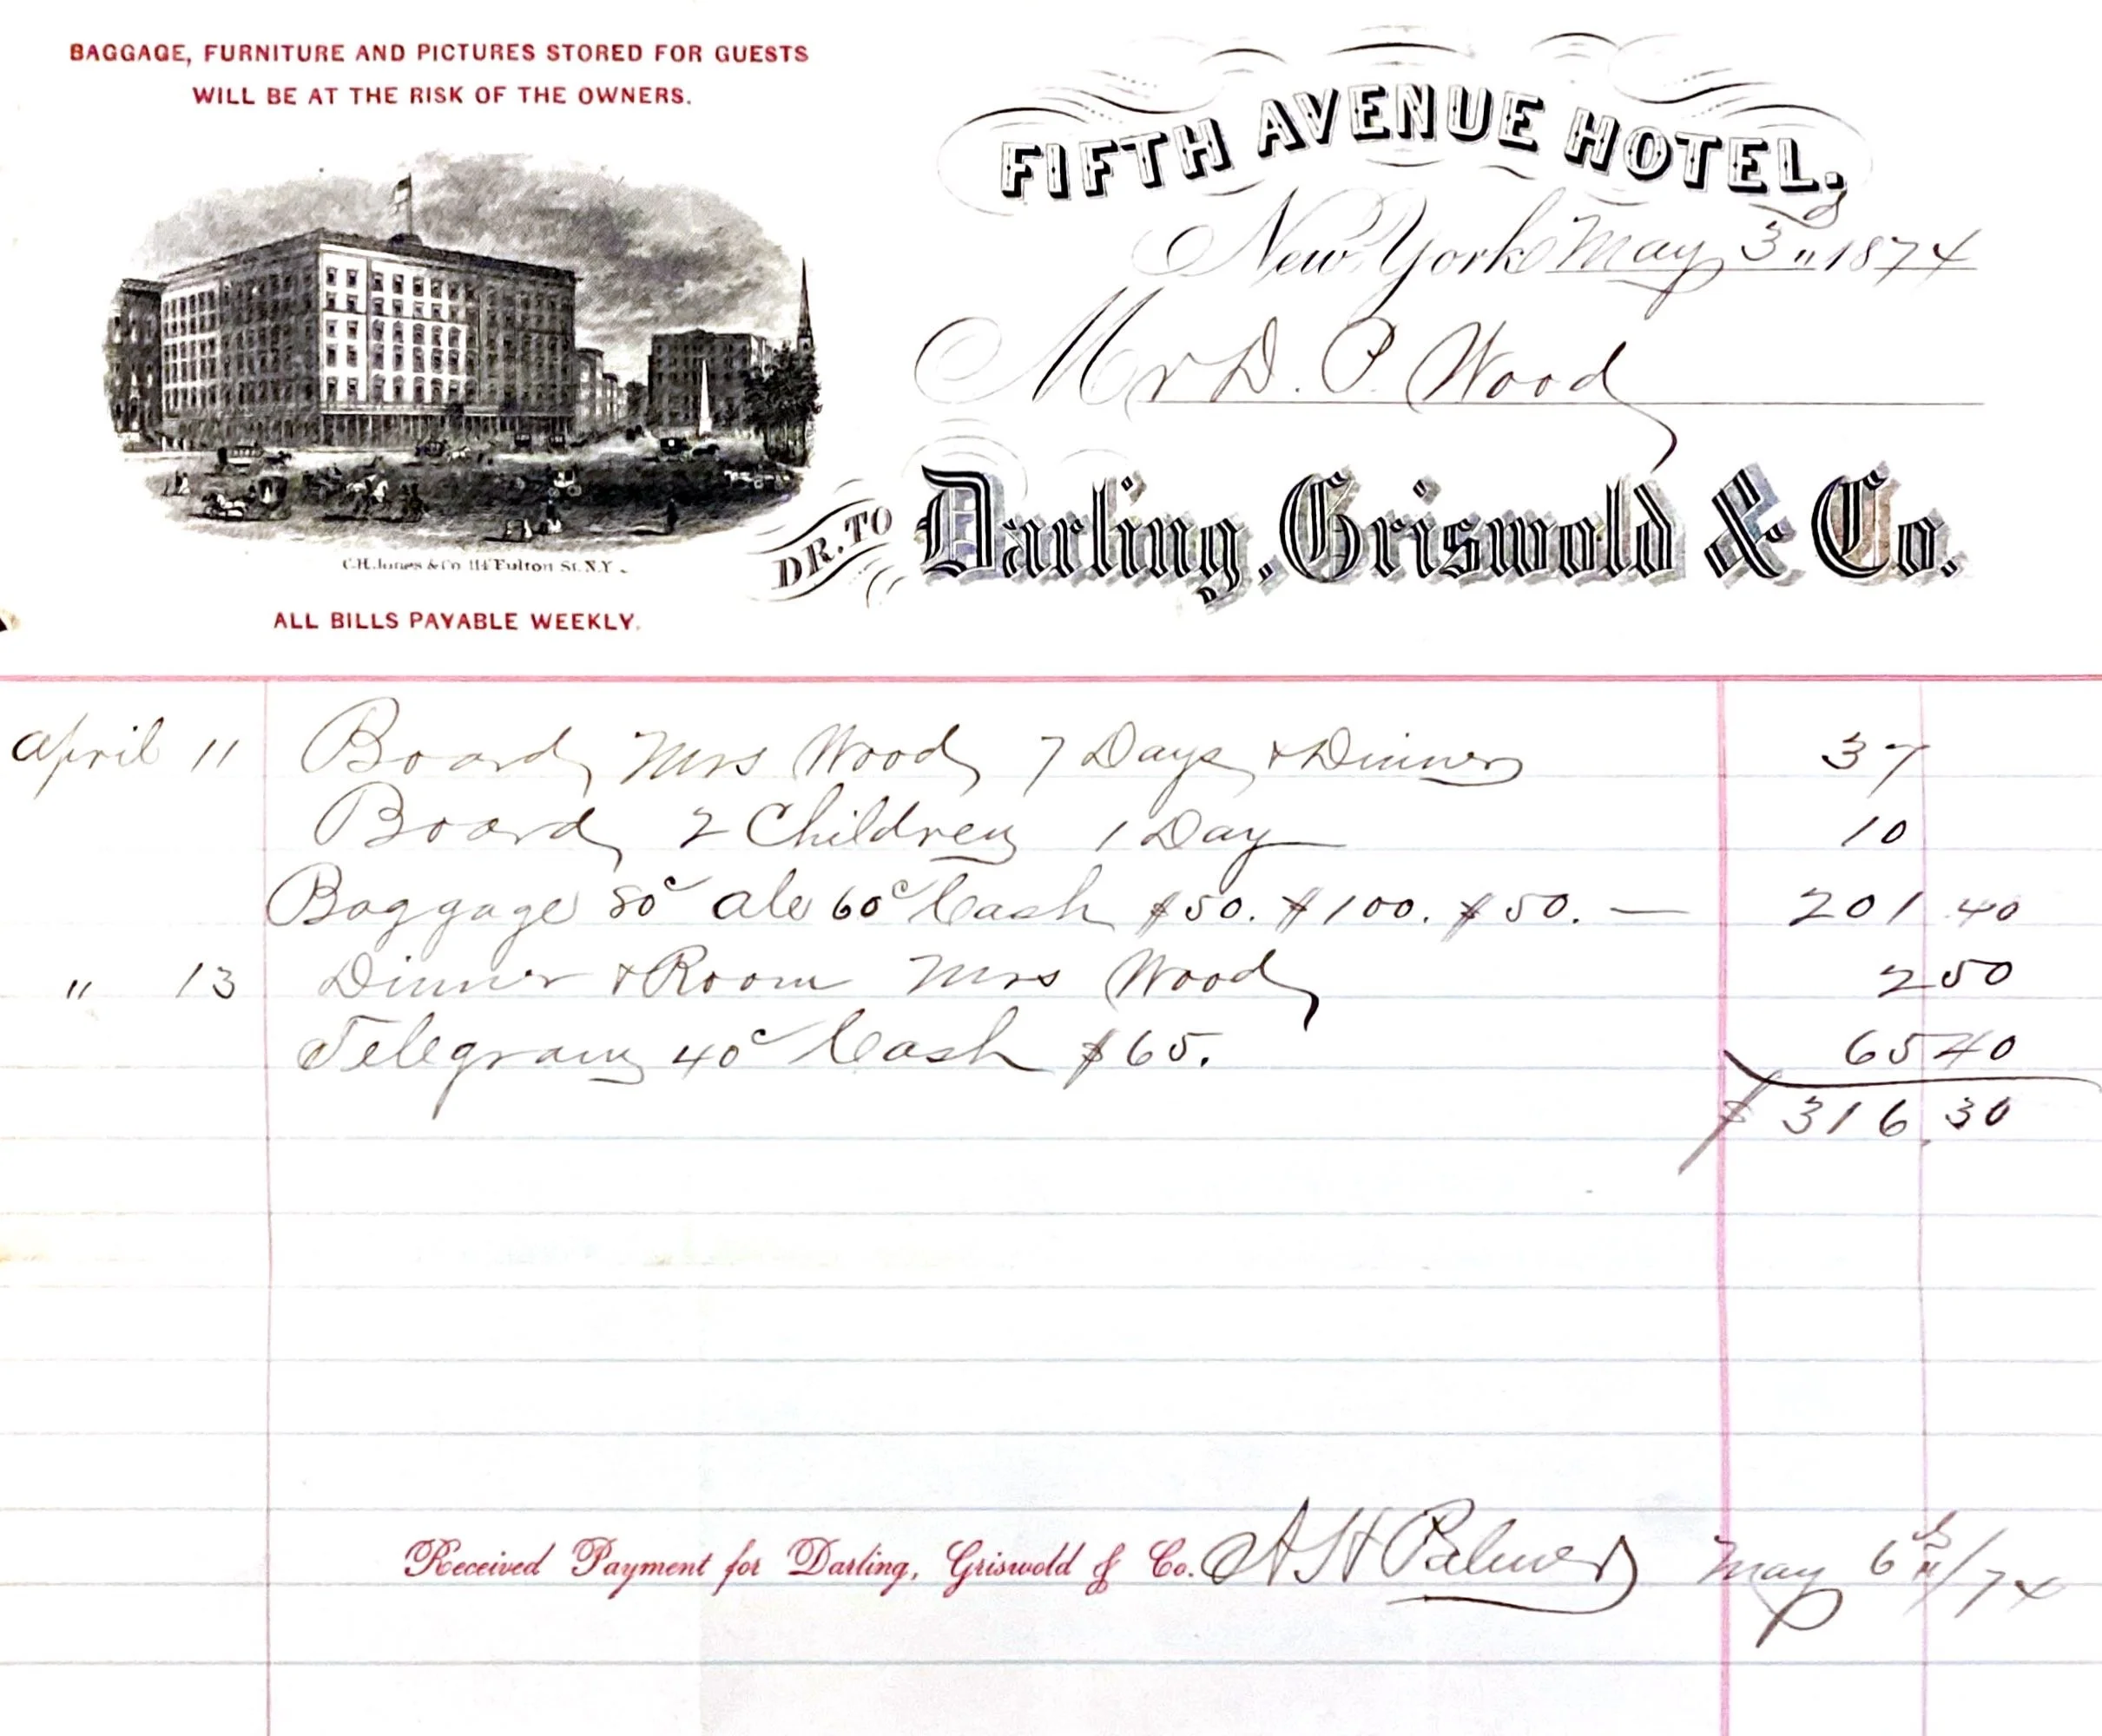 BAGGAGE, FURNITURE AND PICTURES STORED FOR GUESTS
WILL BE AT THE RISK OF THE OWNERS.
C.H. Jones & Co. 114 Fulton St. N.Y.
ALL BILLS PAYABLE WEEKLY.
FIFTH AVENUE HOTEL.
New York May 3d 1874
Mr D. P. Wood
DR. TO Darling, Griswold & Co.
April 11 Board Mrs Wood 7 Days & Dinner 37
Board 2 Children 1 Day 10
Baggage 80c ale 60c Cash $50. $100. $50. — 201 40
" 13 Dinner & Room Mrs Wood 2 50
Telegram 40c Cash $65. 65 40
$316.30
Received Payment for Darling, Griswold & Co. A H Palmer May 6th/74